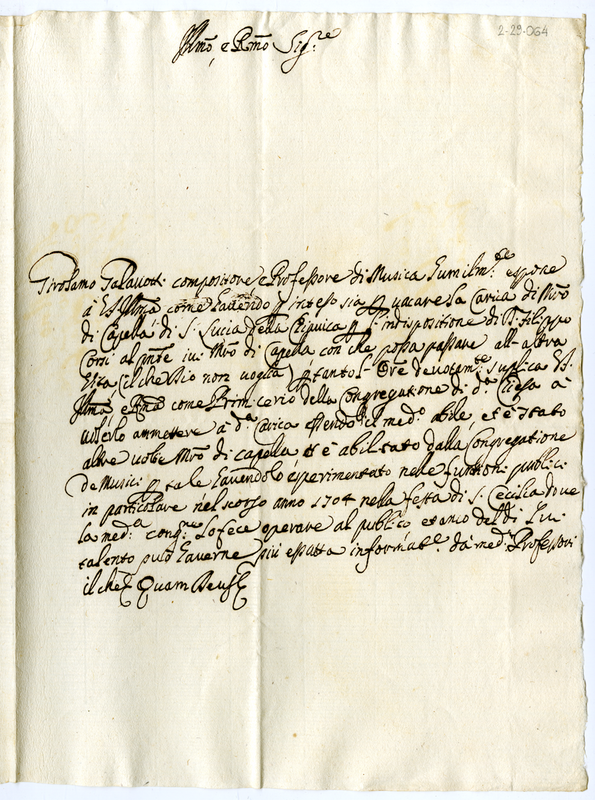 2-29-064
Illmo, e Rmo Sigre
Girolamo Galavotti compositore e Professore di Musica humilmte espone
à VS Illma come havendo inteso sia p vacare la Carica di Mro
di Capella di S. Lucia della p l'indispositione di D. Filippo
Corsi al pnte ivi Mro di Capella con che possa passare all-altra
Vita (il che Dio non voglia) ptanto l'Ore devotamte suplica VS
Illma, e Rma come Primicerio della Congregatione di da Chiesa à
volerlo ammettere à da Carica essendo il medo abile, et è stato
altre volte Mro di capella et è abilitato dalla Congregatione
de Musici p tale havendolo esperimentato nelle funtioni publiche
in particolare nel scorso anno 1704 nella festa di S. Cecilia dove
la meda congne lo fece operare al publico et anco del di lui
talento può haverne più esatta informatne da medi Professori
il che Quam Deus